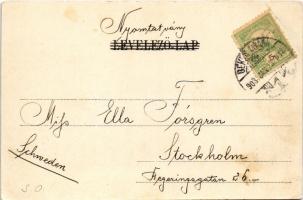 Nyomtatvány
LEVELEZŐ-LAP
Miss Ella Forsgren
Schweden
Stockholm
Regeringsgatan 36
S.O